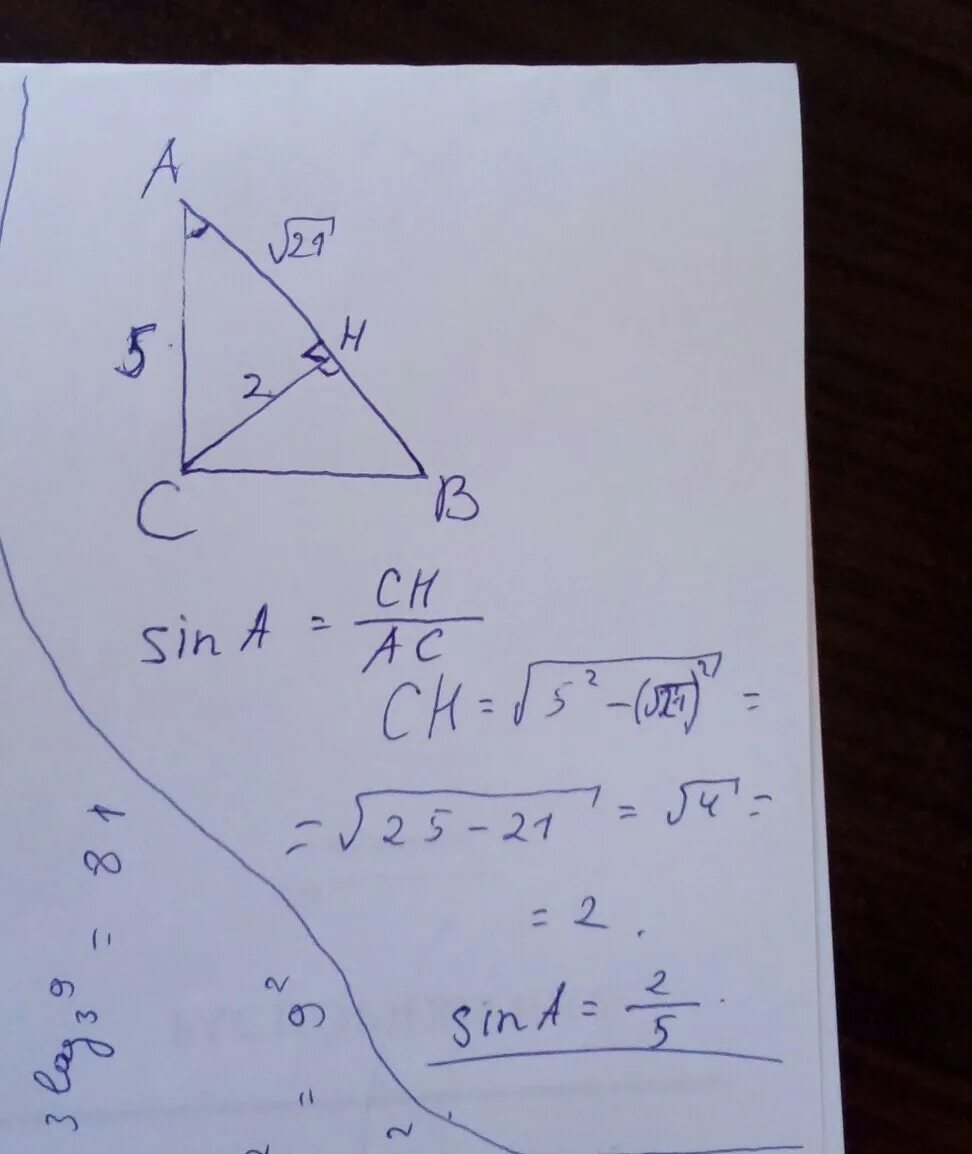 A
√21
5
H
2
C
B
sin A = CH/AC
CH = √(5² - (√21)²) =
= √(25 - 21) = √4 =
= 2 .
sin A = 2/5 .
= 81
= 9²